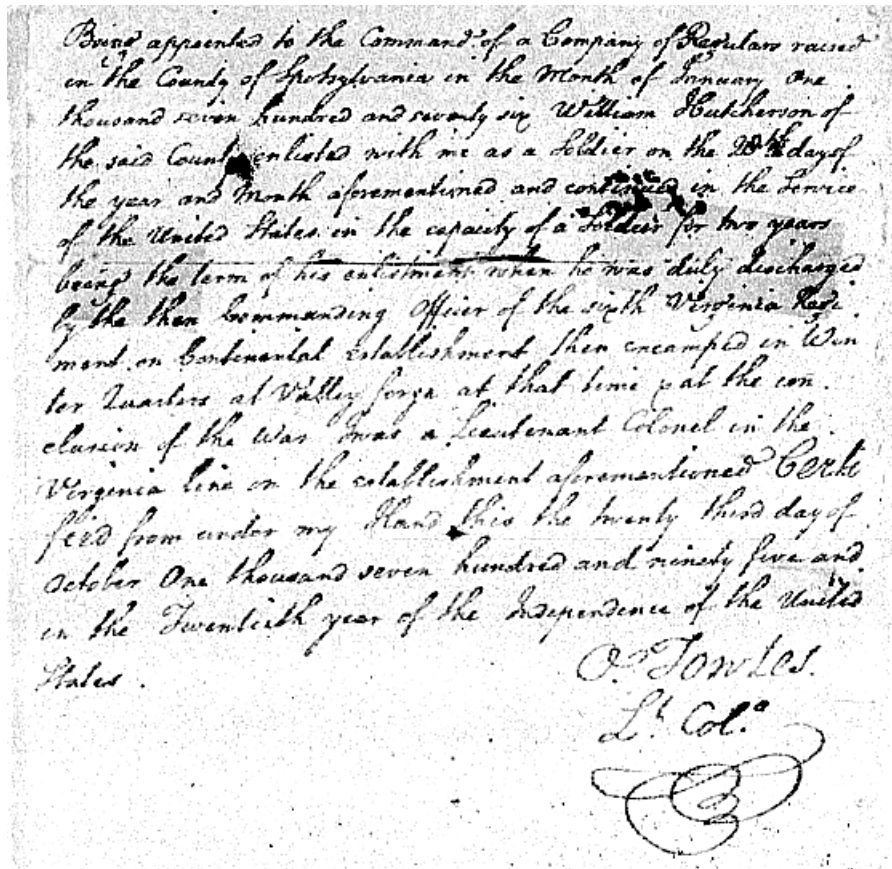 Being appointed to the Command of a Company of Regulars raised
in the County of Spotsylvania in the Month of January One
thousand seven hundred and seventy six William Hutcherson of
the said County enlisted with me as a Soldier on the 28th day of
the year and Month aforementioned and continued in the Service
of the United States in the capacity of a Soldier for two years
being the term of his enlistment when he was duly discharged
by the then Commanding Officer of the sixth Virginia Regi
ment on Continental establishment then encamped in Win
ter Quarters at Valley forge at that time & at the con
clusion of the War I was a Lieutenant Colonel in the
Virginia line on the establishment aforementioned Certi
fied from under my Hand this the twenty third day of
October One thousand seven hundred and ninety five and
in the Twentieth year of the Independence of the United
States.
Or. Towles.
Lt. Col.